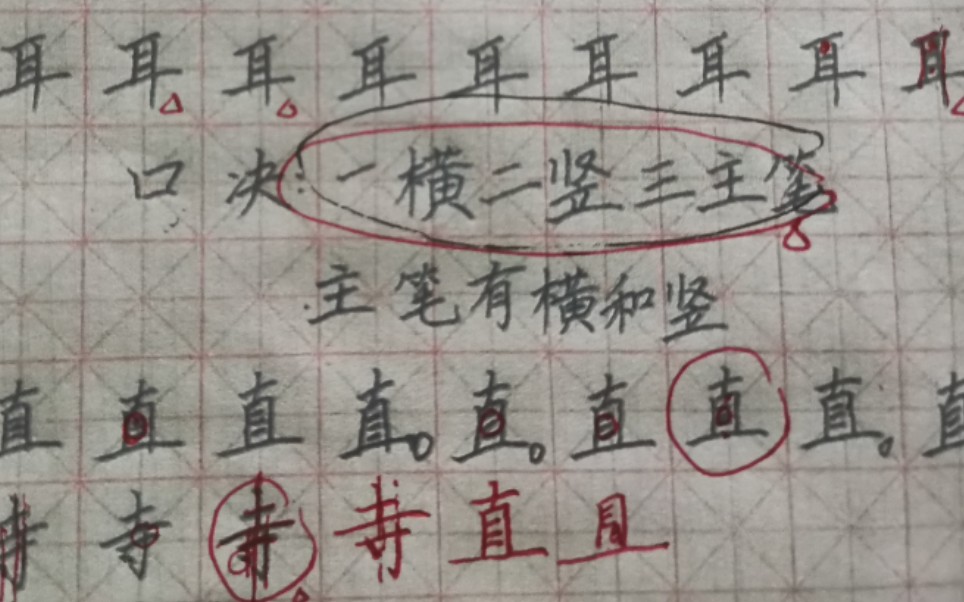 耳耳耳耳耳耳耳耳耳
口决:一横二竖三主笔
主笔有横和竖
直直直直直直直直直
寺寺寺寺直